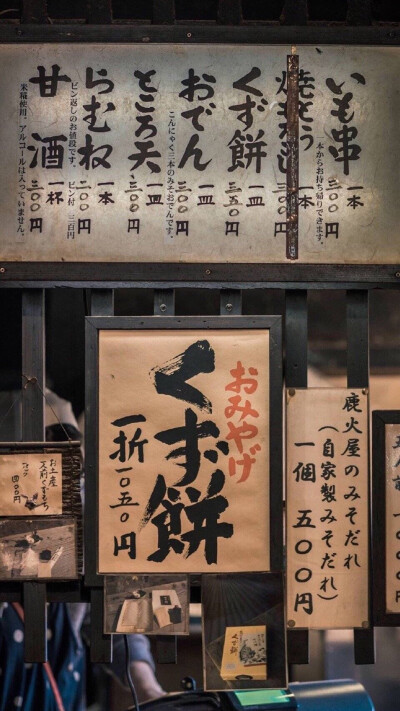 いも串 一本 三〇〇円
一本からお持ち帰りできます。
一本
くず餅 一皿 三五〇円
おでん 一皿 三〇〇円
こんにゃく三本のみそおでんです。
ところ天 一皿 三〇〇円
らむね 一本 二〇〇円
ビン返しのお値段です。 ビン付 三百円
甘酒 一杯 三〇〇円
米糀使用、アルコールは入っていません。
おみやげ
くず餅
一折 一〇五〇円
鹿火屋のみそだれ
(自家製みそだれ)
一個 五〇〇円
お土産
くず餅